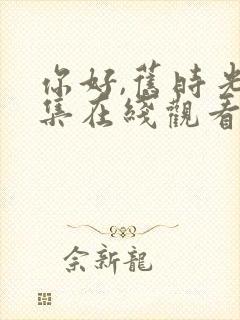 你好,舊時光
集在綫觀看
余新龍